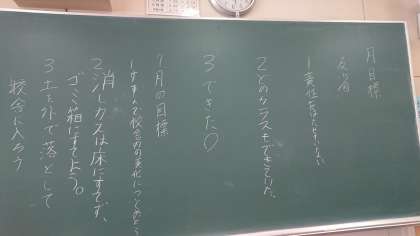 月目標
反省
1責任をはたせていない
2どのクラスもできていた。
3できた〇
7月の目標
1すすんで校舎内の美化につとめよう
2消しカスは床にすてず、
ゴミ箱にすてよう。
3土を外で落として
校舎に入ろう